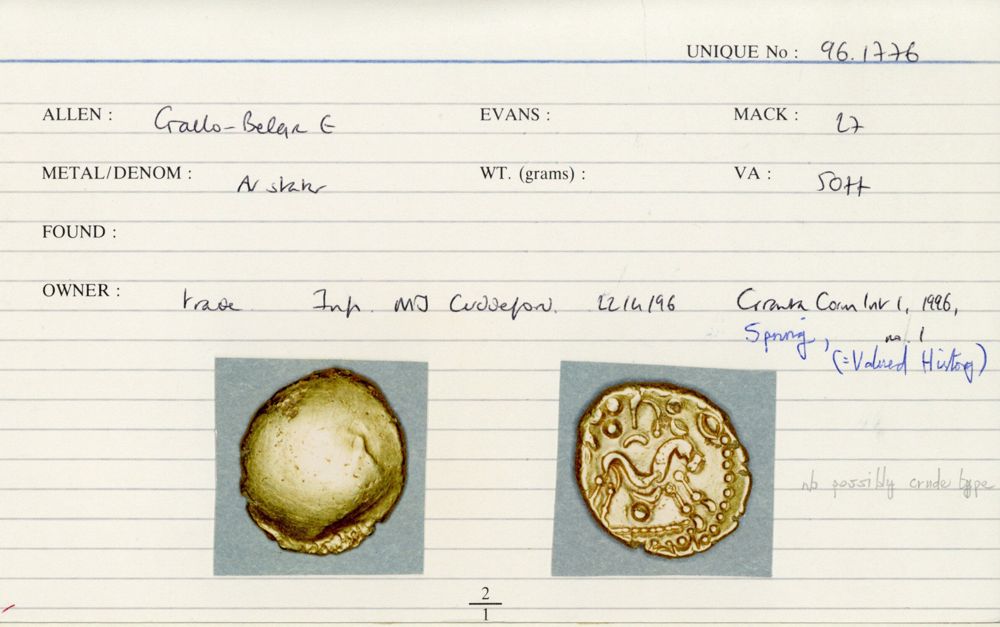 UNIQUE No : 96.1776
ALLEN : Gallo-Belgic E EVANS : MACK : 27
METAL/DENOM : AV stater WT. (grams) : VA :
FOUND :
OWNER : trade Inf. MJ Cuddeford. 22/4/96 1, 1996,
Spring, no. 1
(=Valued History)
nb possibly crude type
2
1